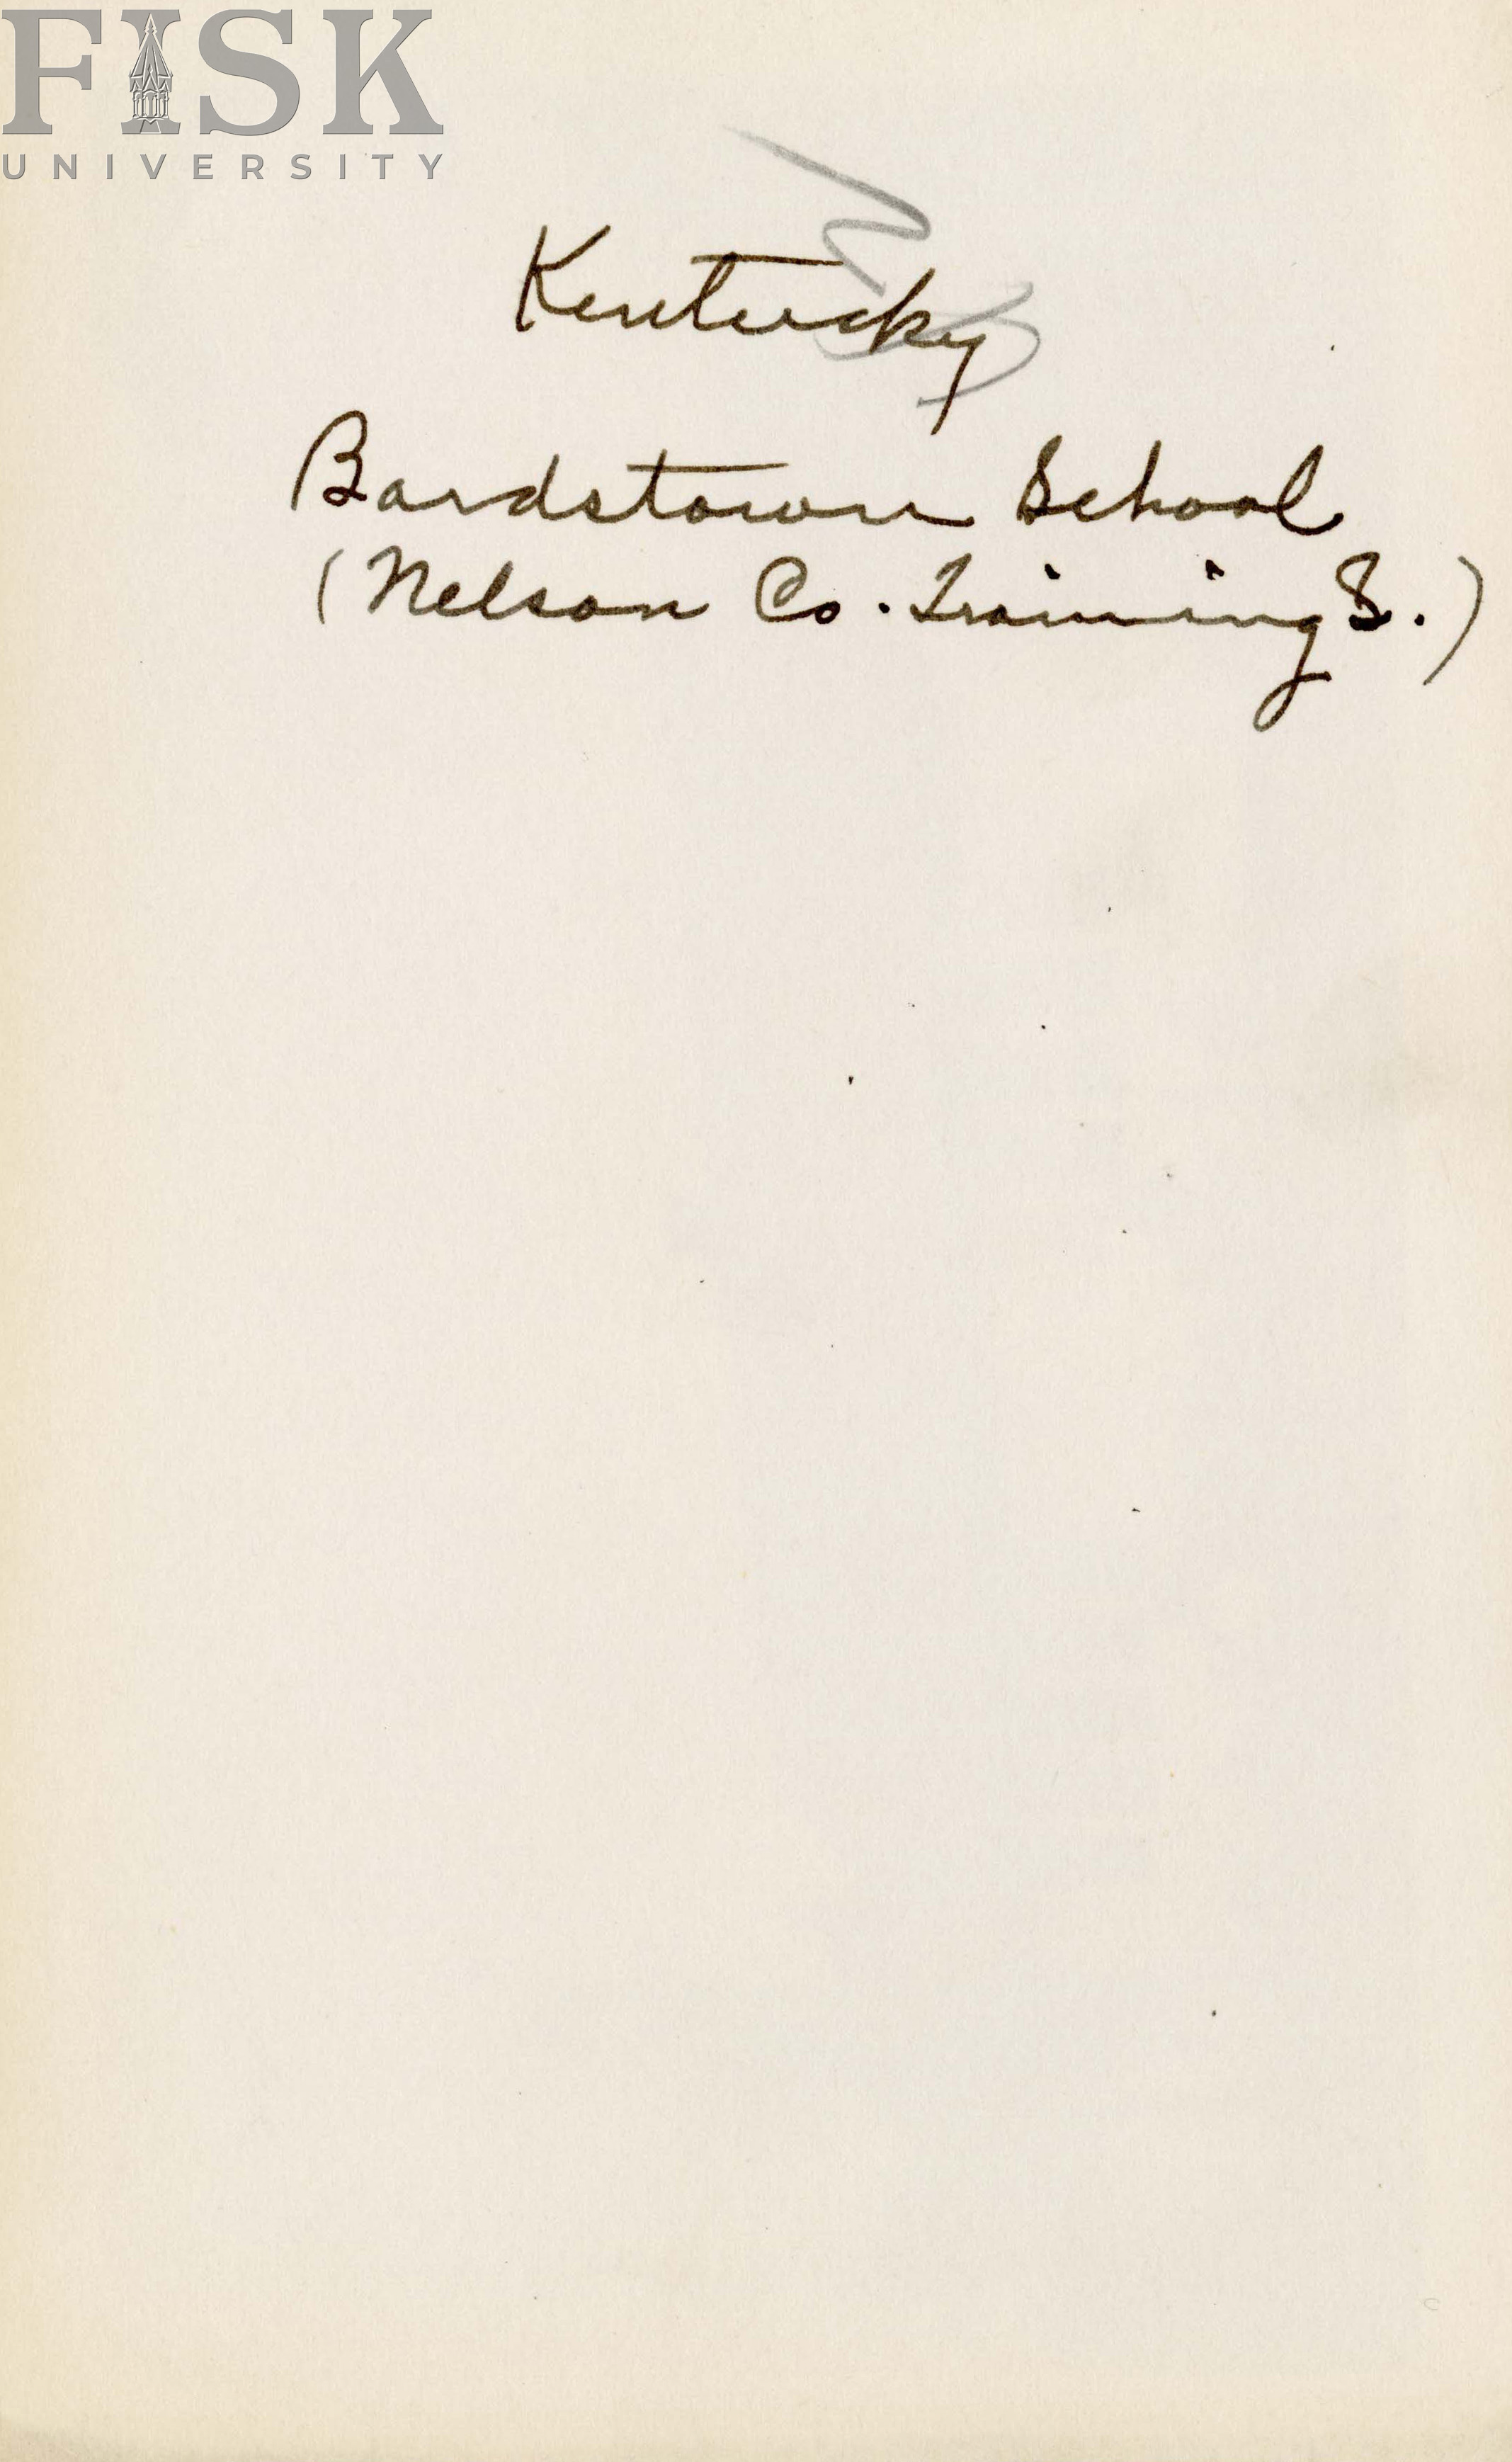 FISK
UNIVERSITY
Kentucky
Bardstown School
(Nelson Co. Training S.)